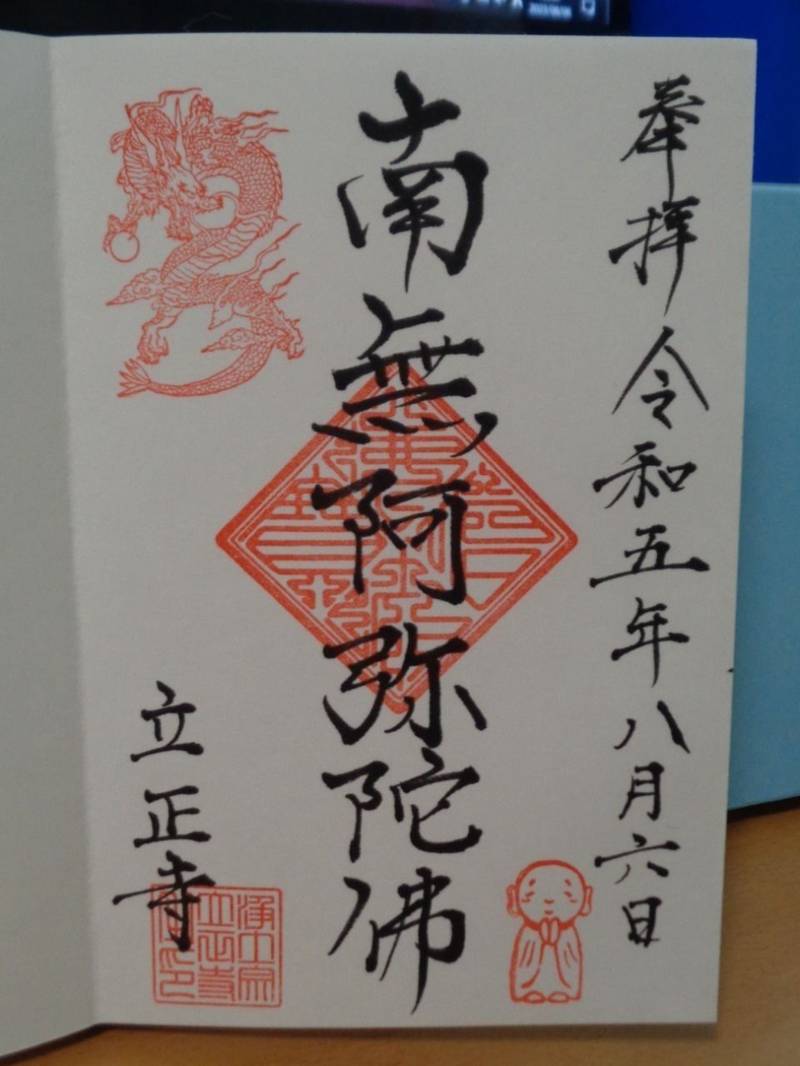 奉拝 令和五年八月六日
南無阿弥陀佛
立正寺